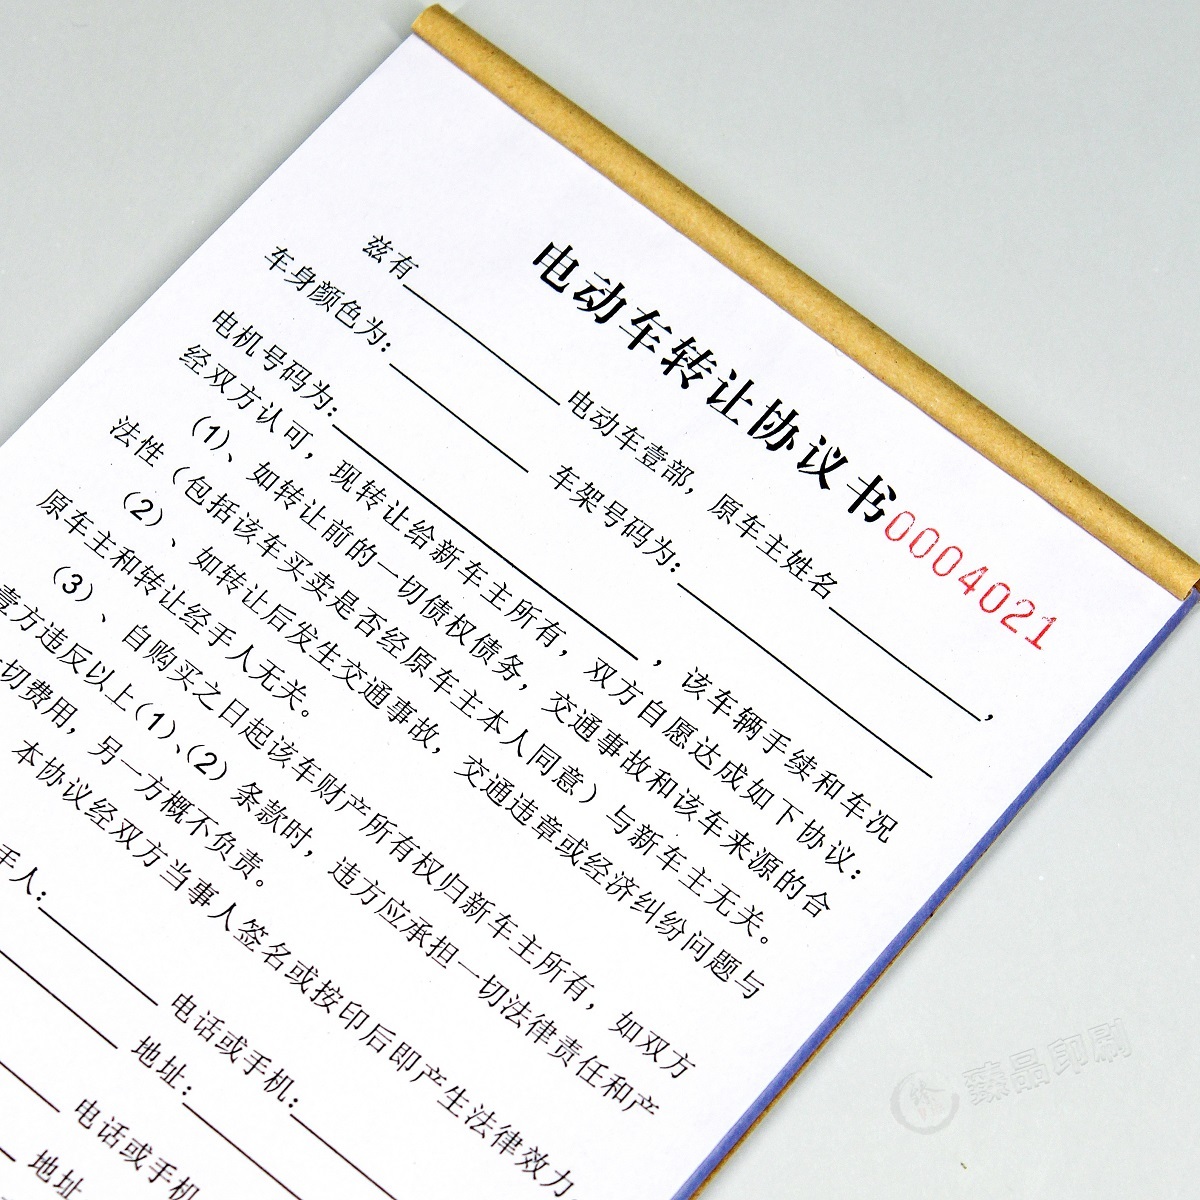 电动车转让协议书 0004021
兹有__________电动车壹部，原车主姓名__________，
车身颜色为：__________ 车架号码为：__________
电机号码为：____________________，该车辆手续和车况
经双方认可，现转让给新车主所有，双方自愿达成如下协议：
(1)、如转让前的一切债权债务，交通事故和该车来源的合
法性（包括该车买卖是否经原车主本人同意）与新车主无关。
(2)、如转让后发生交通事故，交通违章或经济纠纷问题与
原车主和转让经手人无关。
(3)、自购买之日起该车财产所有权归新车主所有，如双方
壹方违反以上(1)、(2)条款时，违方应承担一切法律责任和产
一切费用，另一方概不负责。
本协议经双方当事人签名或按印后即产生法律效力。
手人：__________ 电话或手机：__________
地址：__________
电话或手机
地址
臻品印刷